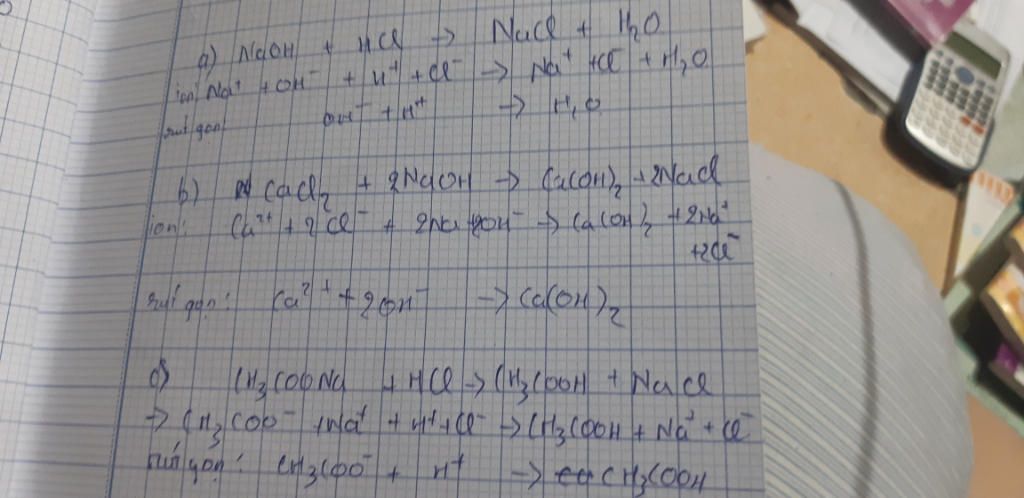 a) NaOH + HCl → NaCl + H₂O
ion: Na⁺ + OH⁻ + H⁺ + Cl⁻ → Na⁺ + Cl⁻ + H₂O
rút gọn: OH⁻ + H⁺ → H₂O
b) CaCl₂ + 2NaOH → Ca(OH)₂ + 2NaCl
ion: Ca²⁺ + 2Cl⁻ + 2Na + 2OH⁻ → Ca(OH)₂ + 2Na⁺
+2Cl⁻
rút gọn: Ca²⁺ + 2OH⁻ → Ca(OH)₂
c) CH₃COONa + HCl → CH₃COOH + NaCl
→ CH₃COO⁻ + Na⁺ + H⁺ + Cl⁻ → CH₃COOH + Na⁺ + Cl⁻
rút gọn: CH₃COO⁻ + H⁺ → CH₃COOH